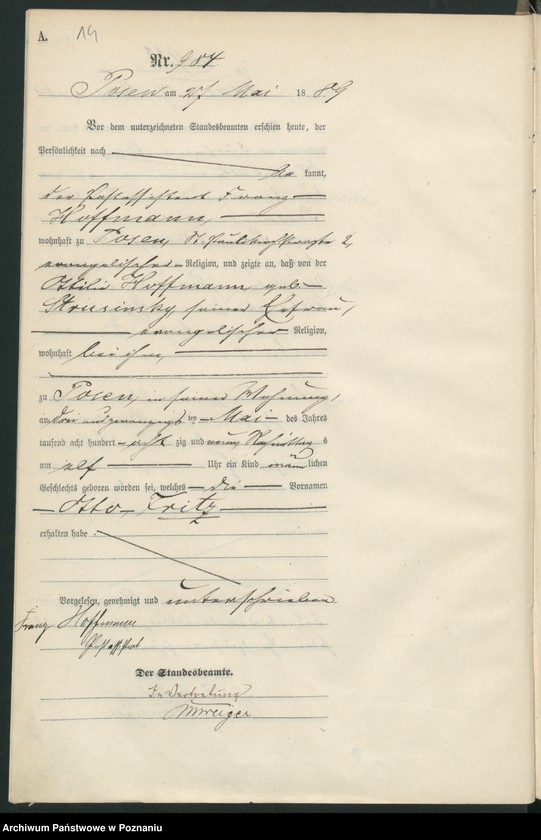 A.
14
Nr. 984
Posen am 27 Mai 1889
Vor dem unterzeichneten Standesbeamten erschien heute, der
Persönlichkeit nach
kannt,
der Postassistent Franz
Hoffmann,
wohnhaft zu Posen, St. Paulikirchstraße 2,
evangelischer Religion, und zeigte an, daß von der
Ottilie Hoffmann geb.
Strusinsky seiner Ehefrau,
evangelischer Religion,
wohnhaft bei ihm,
zu Posen, in seiner Wohnung,
am drei und zwanzigsten Mai des Jahres
tausend acht hundert acht zig und neun Nachmittags
um elf Uhr ein Kind männlichen
Geschlechts geboren worden sei, welches die Vornamen
Otto Fritz
erhalten habe.
Vorgelesen, genehmigt und unterschrieben
Franz Hoffmann
Postassistent
Der Standesbeamte.
In Vertretung
Archiwum Państwowe w Poznaniu